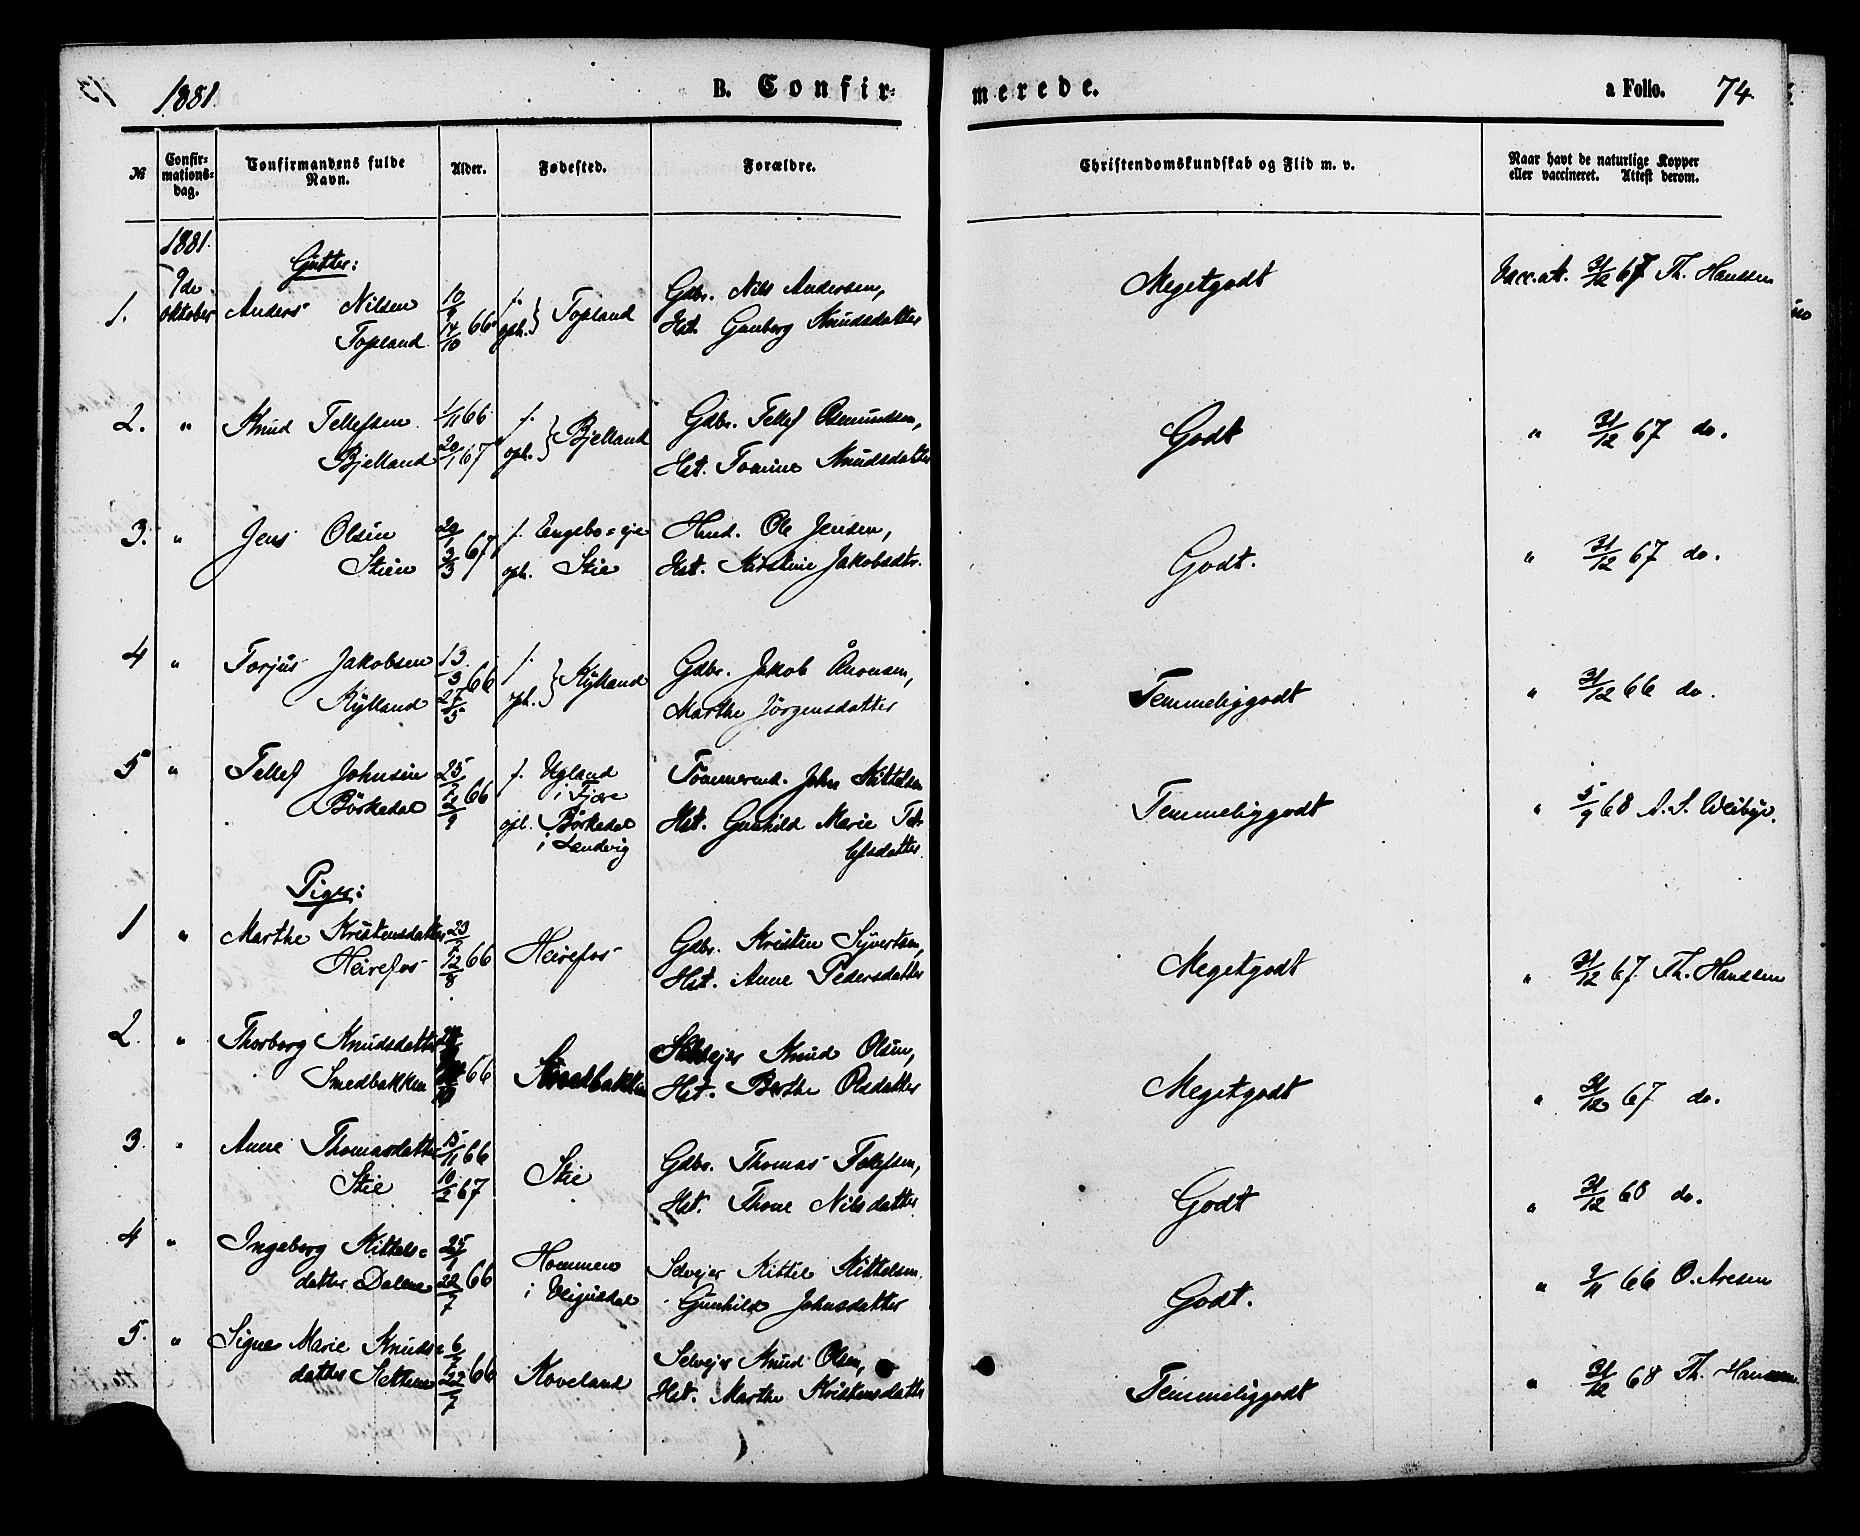 1881
B. Confir-
merede.
a Folio. 74
№
Confir-
mations-
dag.
Confirmandens fulde
Navn.
Alder.
Fødested.
Forældre.
Christendomskundskab og Flid m. v.
Naar havt de naturlige Kopper
eller vaccineret. Attest derom.
1881.
9de
oktober
Gutter:
1. Anders Nilsen
Topland
10/9
14/10 66
f.
oph. } Topland
Gdbr. Nils Andersen,
Hst. Gunborg Knudsdatter
Megetgodt
Vacc. at. 31/12 67 Th. Hanssen
2. " Knud Tellefsen
Bjelland
1/11 66
20/1 67
f.
oph. } Bjelland
Gdbr. Tellef Osmundsen,
Hst. Tomine Knudsdatter
Godt
" 31/12 67 do.
3. " Jens Olsen
Stien
20/1
3/3 67
f. Engebo=eje
oph. Stie
Hmd. Ole Jensen,
Hst. Kirstine Jakobsdtr.
Godt.
" 31/12 67 do.
4 " Torjus Jakobsen
Kylland
13/3
27/5 66
f.
oph. } Kylland
Gdbr. Jakob Aronsen,
Marthe Jörgensdatter
Temmeliggodt
" 31/12 66 do.
5 " Tellef Johnsen
Börkedal
25/7
2/9 66
f. Ugland
i Fjære
opl. Börkedal
i Landvig
Tömmermd. John Kittelsen
Hst. Gunhild Marie Tel-
lefsdatter
Temmeliggodt
" 5/9 68 A. S. Weibye.
Piger:
1 " Marthe Kristensdatter
Heirefos
23/7
12/8 66
Heirefos
Gdbr. Kristen Syvertsen,
Hst. Anne Pedersdatter
Megetgodt
" 31/12 67 Th. Hanssen
2. " Thorborg Knudsdatter
Smedbakken
66
Smedbakken
Selvejer Knud Olsen,
Hst. Berthe Olsdatter
Megetgodt
" 31/12 67 do.
3. " Anne Thomasdatter
Stie
15/11 66
10/2 67
Stie
Gdbr. Thomas Tellefsen,
Hst. Thone Nilsdatter
Godt
" 31/12 68 do.
4 " Ingeborg Kittels=
datter Dalene
25/1
22/7 66
Hommen
i Veigusdal
Selvejer Kittel Kittelsen
Gunhild Johnsdatter
Godt.
" 9/11 66 O. Aresen
5. " Signe Marie Knuds=
datter Sletten
6/7
22/7 66
Koveland
Selvejer Knud Olsen,
Hst. Marthe Kristensdatter
Temmeliggodt
" 31/12 68 Th. Hanssen